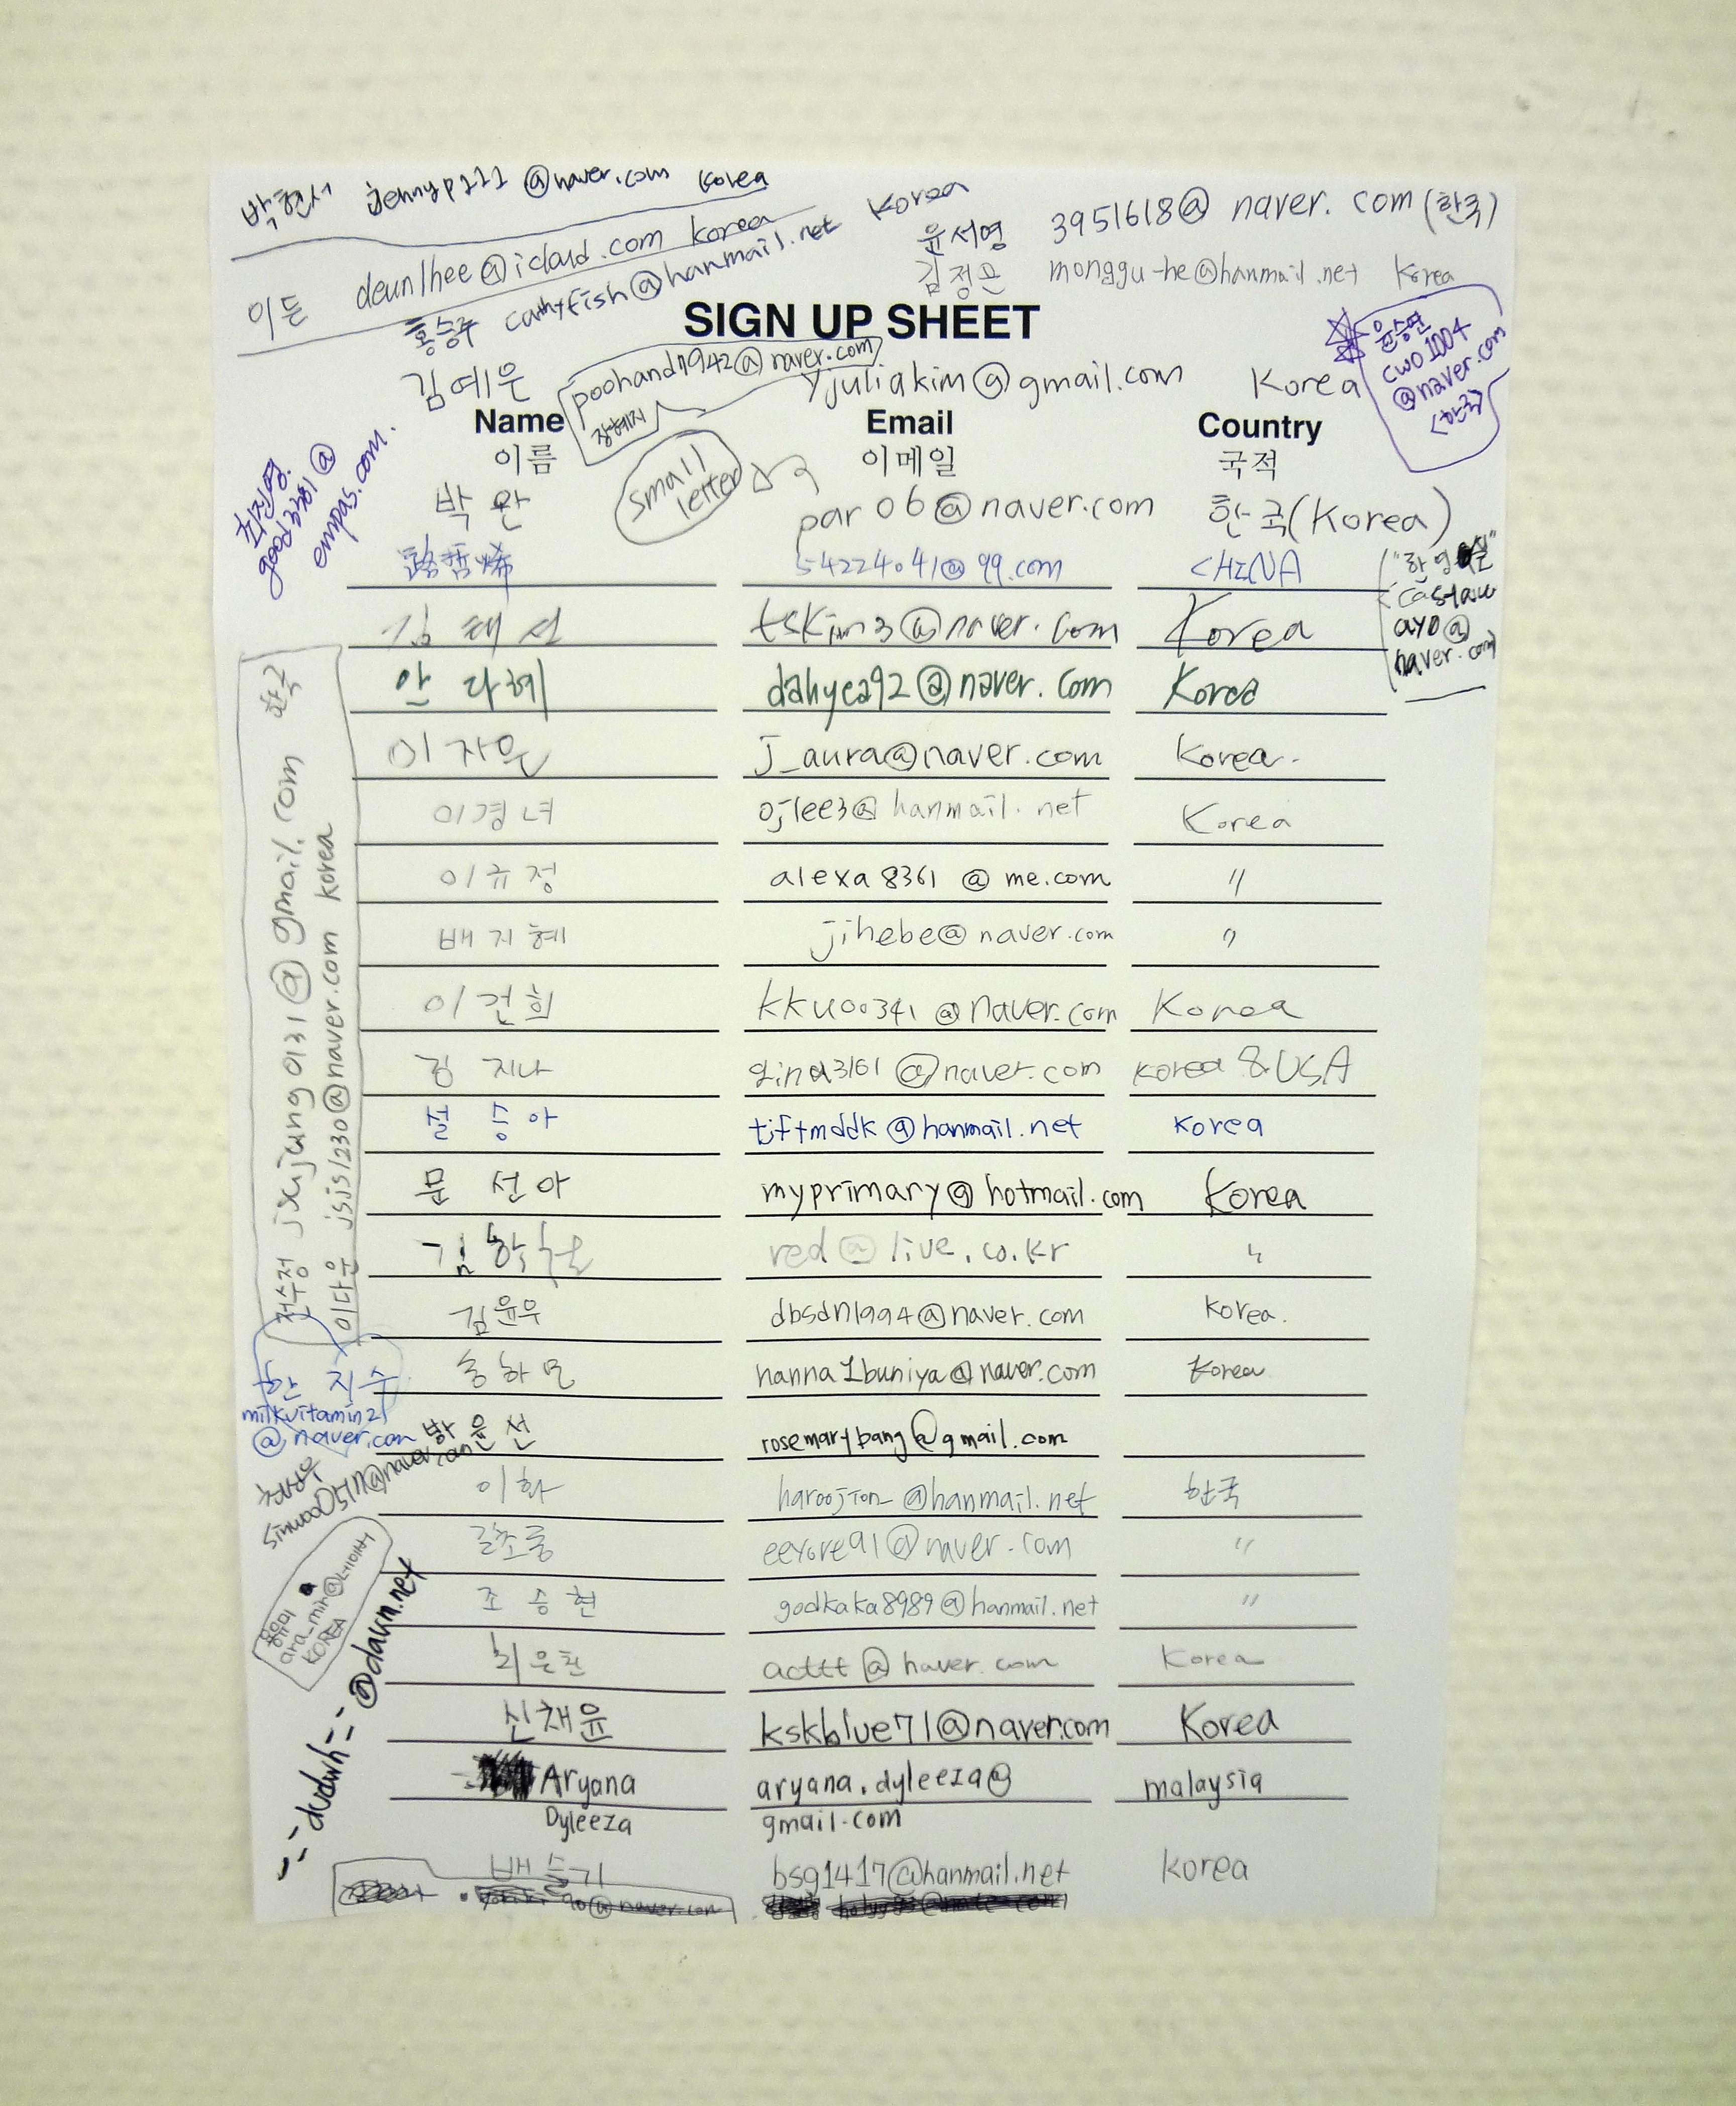 박현서 jennyp111@naver.com Korea
이든 deunlhee@icloud.com korea
홍승주 @hanmail.net Korea
윤서영 3951618@naver.com (한국)
김정은 monggu-he@hanmail.net Korea
SIGN UP SHEET
김예은 yjuliakim@gmail.com Korea
poohand1942@naver.com
장혜지
윤승연
cwo1004
@naver.com
(한국)
Name Email Country
이름 이메일 국적
small
letter
박완 par06@naver.com 한국(Korea)
최진영
@
empas.com.
54224041@qq.com CHINA
ayo@
naver.com
김태선 tskim3@naver.com Korea
안다혜 dahyea92@naver.com Korea
이자운 j_aura@naver.com Korea.
이경녀 ojlee3@hanmail.net Korea
이규정 alexa8361@me.com "
배지혜 jihebe@naver.com "
이건희 kku00341@naver.com Korea
김지나 gina3161@naver.com korea & USA
설승아 tjftmddk@hanmail.net korea
문선아 myprimary@hotmail.com Korea
red@live.co.kr "
김윤우 dbsdn1994@naver.com Korea.
송하 @naver.com Korea
방윤선 rosemarybang@gmail.com
이화 @hanmail.net 한국
길초롱 eeyore91@naver.com "
조승현 godkaka8989@hanmail.net "
acttt@naver.com Korea
신채윤 kskblue71@naver.com Korea
Aryana aryana.dyleeza@ malaysia
Dyleeza gmail.com
배슬기 bsg1417@hanmail.net Korea
전수정 jsujung0131@gmail.com 한국
이다운 jsjs1230@naver.com korea
한지수
milkvitamin21
@naver.com
sinwoo0517@naver.com
ara_min@네이버
KOREA
--dudwh--@daum.net